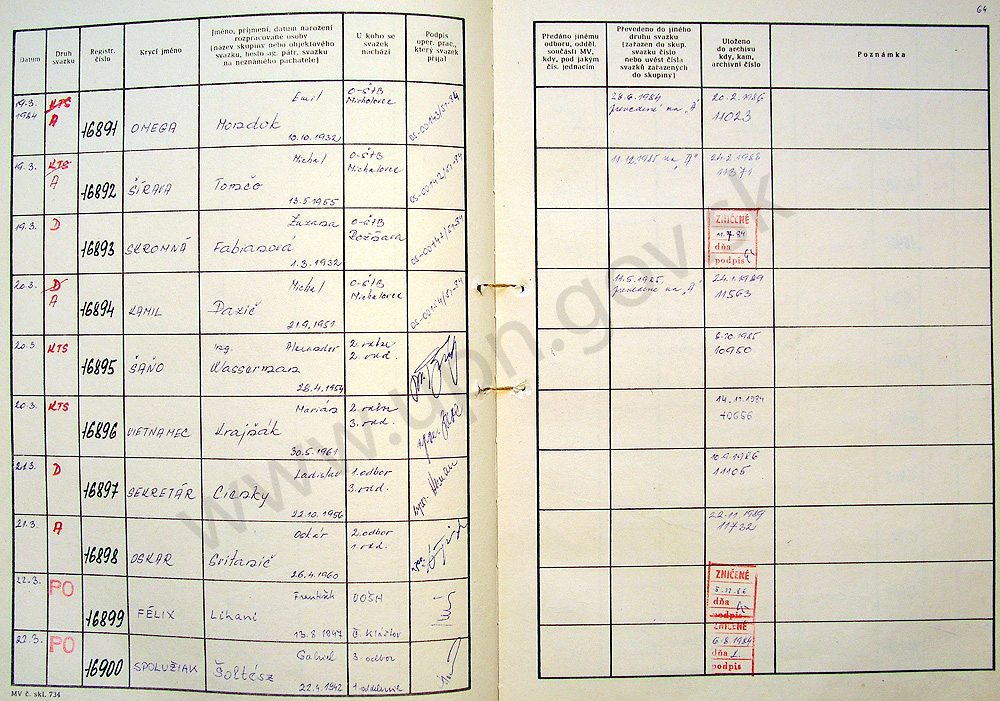 64
Datum
Druh
svazku
Registr.
číslo
Krycí jméno
Jméno, příjmení, datum narození
rozpracované osoby
(název skupiny nebo objektového
svazku, heslo ag. pátr. svazku
na neznámého pachatele)
U koho se
svazek
nachází
Podpis
oper. prac.,
který svazek
přijal
Předáno jinému
odboru, odděl.
součásti MV,
kdy, pod jakým
čís. jednacím
Převedeno do jiného
druhu svazku
(zařazen do skup.
svazku číslo
nebo uvést čísla
svazků zařazených
do skupiny)
Uloženo
do archivu
kdy, kam,
archivní číslo
Poznámka
19.3.
1984
KTS
A
16891
OMEGA
Emil
Mondok
10.10.1932
O-ŠtB
Michalovce
OS-00143/51-84
28.6.1984
prevedené na "A"
20.2.1986
11023
19.3.
KTS
A
16892
ŠÍRAVA
Michal
Tomčo
13.5.1955
O-ŠtB
Michalovce
OS-00142/51-84
11.12.1985 na "A"
24.2.1988
11371
19.3.
D
16893
SKROMNÁ
Zuzana
Fabianova
1.3.1932
O-ŠtB
Rožňava
OS-00147/51-84
ZNIČENÉ
dňa
podpis
20.3.
D
A
16894
KAMIL
Michal
21.9.1951
O-ŠtB
Michalovce
11.5.1985,
prevedené na "A"
24.1.1989
11563
20.3.
KTS
16895
ŠAŇO
Ing. Alexander
Wasserman
28.4.1954
2. odbor
2. odd.
6.10.1985
10950
20.3.
KTS
16896
VIETNAMEC
Marián
Krajňák
30.5.1961
2. odbor
3. odd.
14.11.1984
10656
21.3.
D
16897
SEKRETÁR
Ladislav
Cienky
22.10.1956
1. odbor
3. odd.
10.9.1986
11105
21.3.
A
16898
OSKAR
Oskár
26.4.1960
2. odbor
1. odd.
22.11.1989
11732
22.3.
PO
16899
FÉLIX
František
Lihani
13.8.1947
ZNIČENÉ
dňa
podpis
22.3.
PO
16900
SPOLUŽIAK
Gabriel
Šoltész
22.4.1942
3. odbor
1 oddelenie
ZNIČENÉ
6-8.1984
dňa
podpis
MV č. skl. 734
www.upn.gov.sk